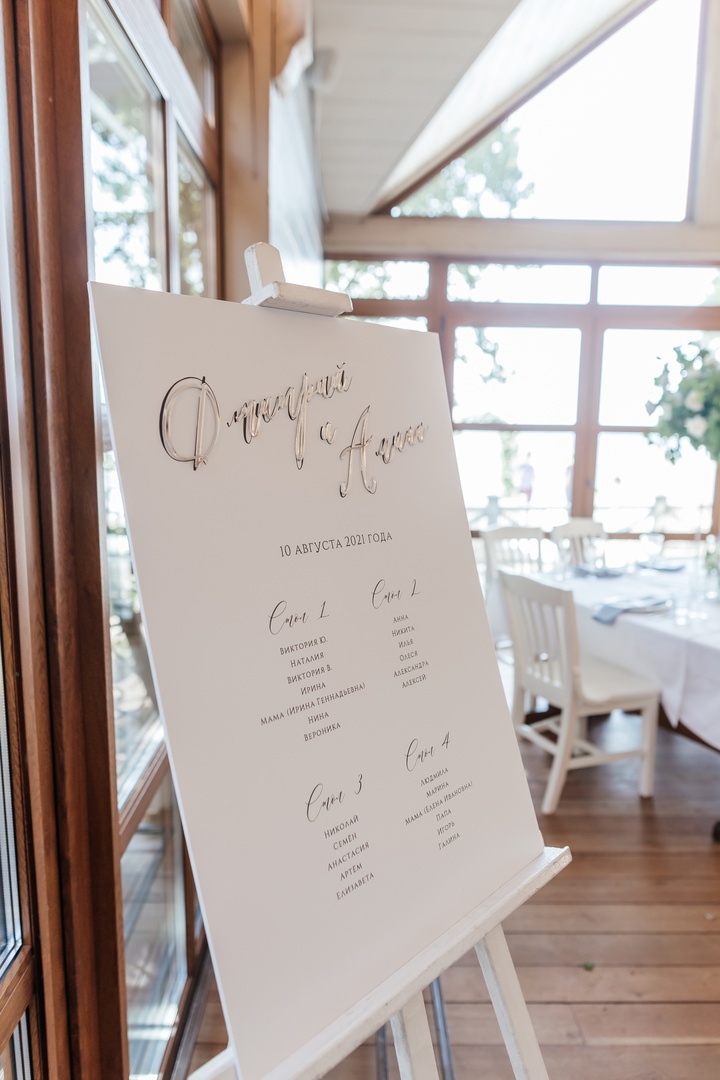 Дмитрий
и Алина
10 АВГУСТА 2021 ГОДА
Стол 1
ВИКТОРИЯ Ю.
НАТАЛИЯ
ВИКТОРИЯ В.
ИРИНА
МАМА (ИРИНА ГЕННАДЬЕВНА)
НИНА
ВЕРОНИКА
Стол 2
АННА
НИКИТА
ИЛЬЯ
ОЛЕСЯ
АЛЕКСАНДРА
АЛЕКСЕЙ
Стол 3
НИКОЛАЙ
СЕМЁН
АНАСТАСИЯ
АРТЁМ
ЕЛИЗАВЕТА
Стол 4
ЛЮДМИЛА
МАРИНА
МАМА (ЕЛЕНА ИВАНОВНА)
ПАПА
ИГОРЬ
ГАЛИНА